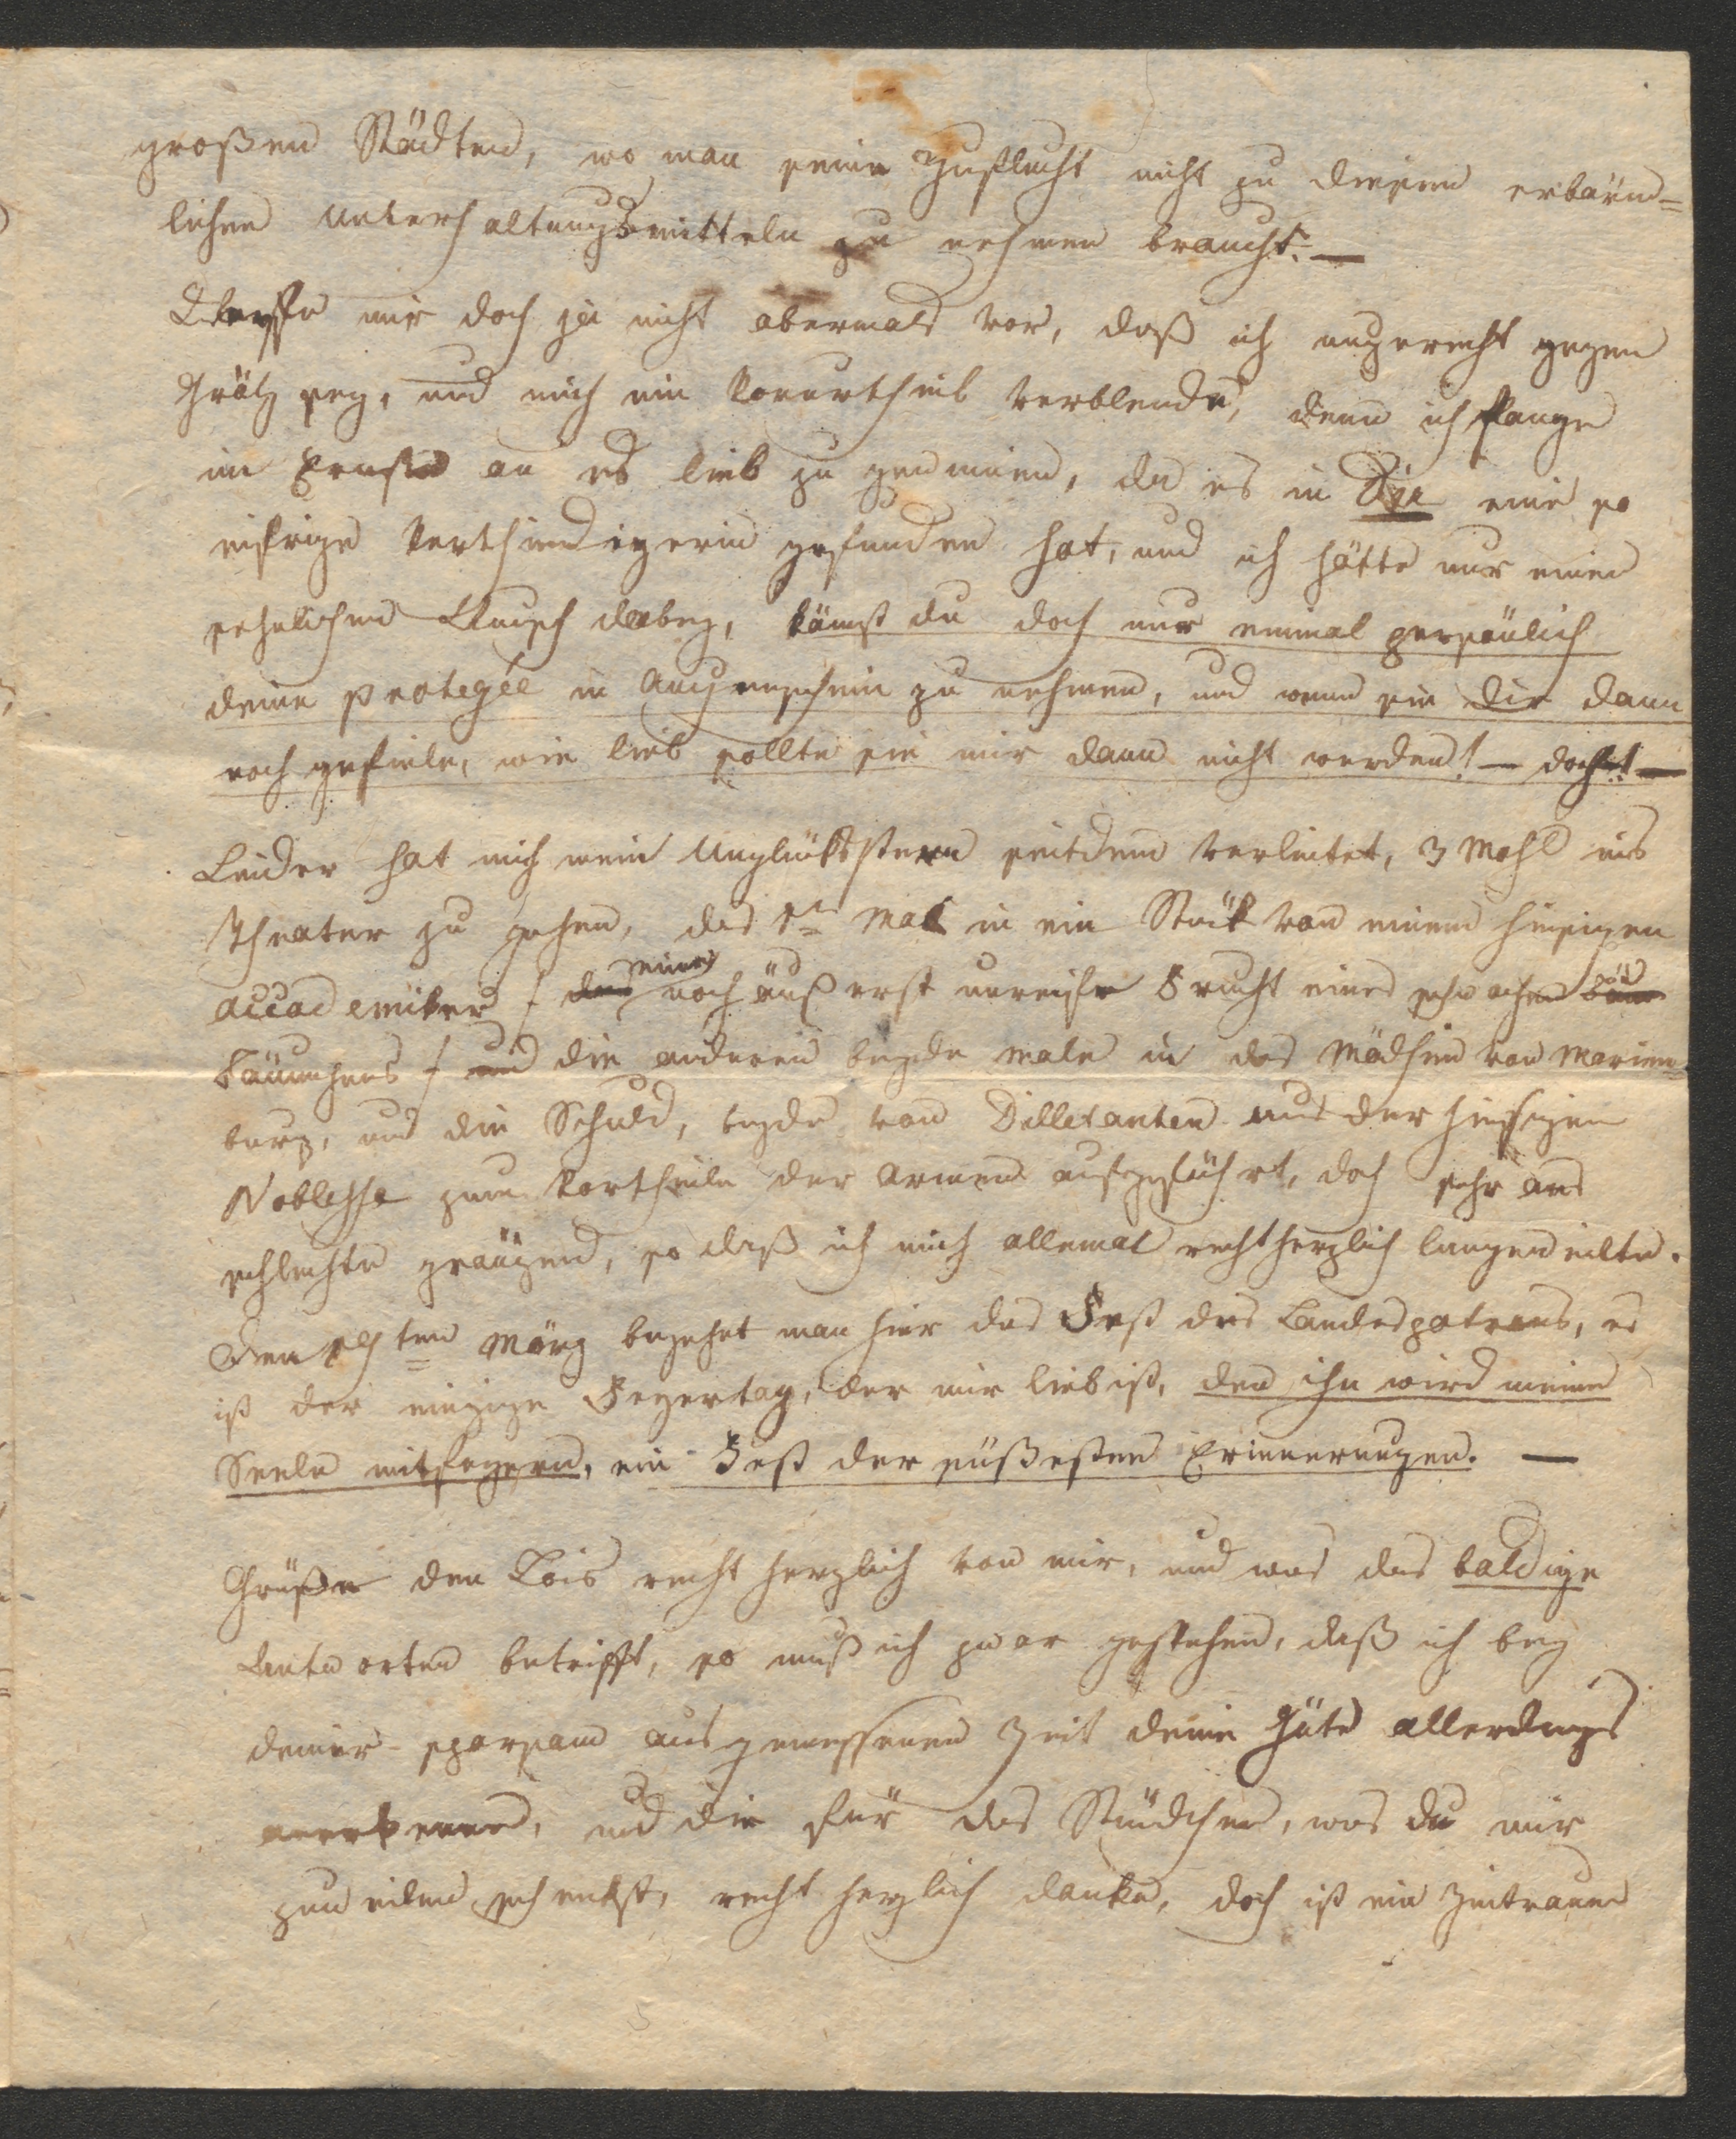 großen Städten, wo man seine Zuflucht nicht zu diesen erbärm=
lichen Unterhaltungsmitteln zu nehmen braucht. —
Werffe mir doch ja nicht abermals vor, daß ich ungerecht gegen
Grätz sey, und mich ein Vorurtheil verblende, denn ich fange
im Ernste an es lieb zu gewinnen, da es in Dir eine so
eifrige Vertheidigerin gefunden hat, und ich hätte nur einen
sehnlichen Wunsch dabey, kämst du doch nur einmal persönlich
deine Protegée in Augenschein zu nehmen, und wenn sie dir dann
noch gefiele, wie lieb sollte sie mir dann nicht werden! — doch! —
Leider hat mich mein Unglücksstern seitdem verleitet, 3 Mahl ins
Theater zu gehen, das 1te Mal in ein Stück von einem hiesigen
Accademiker / der einer noch äußerst unreife Frucht eines schwachen Bäum
Bäumchens / und die anderen beyde male in das Mädchen von Marien=
burg, und die Schuld, beyde von Dilletanten aus der hiesigen
Noblesse zum Vortheile der Armen aufgeführt, doch sehr ans
schlechte gränzend, so daß ich mich allemal recht herzlich langweilte.
Den 19ten März begeht man hier das Fest des Landespatrons, es
ist der einzige Feyertag, der mir lieb ist, den ihn wird meine
Seele mitfeyern, ein Fest der süßesten Erinnerungen. —
Grüße den Lois recht herzlich von mir, und was das baldige
Antworten betrifft, so muß ich zwar gestehen, daß ich bey
deiner sparsam ausgemessenen Zeit deine Güte allerdings
anerkenne, und dir für das Stündchen, was du mir
zuweilen schenkst, recht herzlich danke, doch ist ein Zeitraum